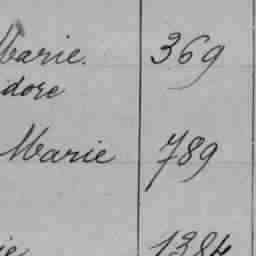 Marie 369
dore
Marie 789
1384